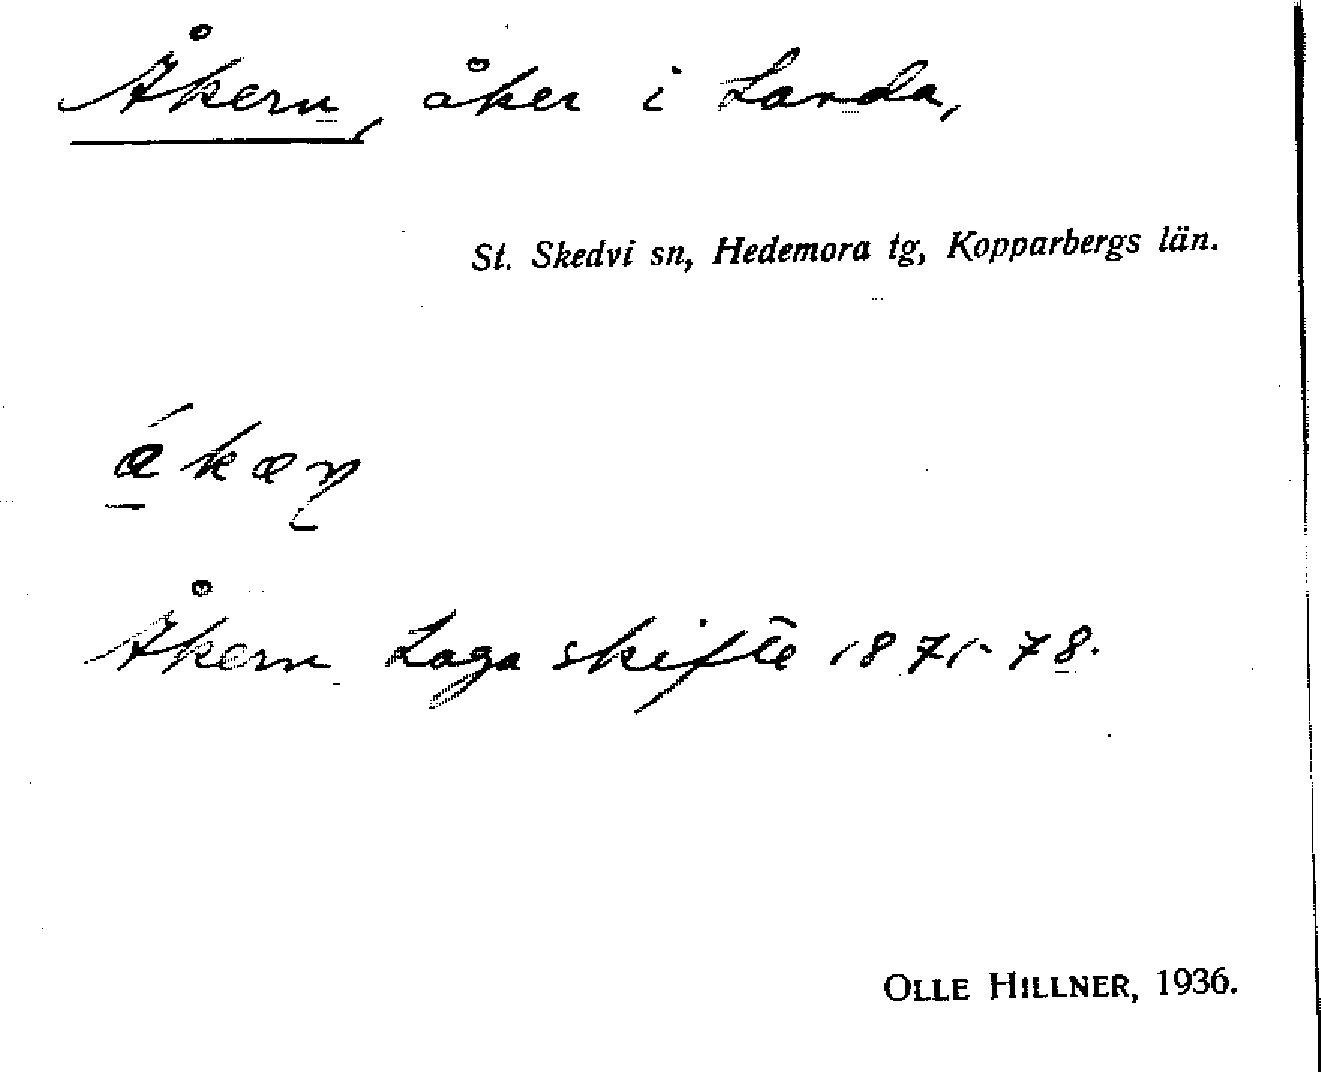 Åkern, åker i Landa,
St. Skedvi sn, Hedemora tg, Kopparbergs län.
Åkern Laga skifte 1871-78.
OLLE HILLNER, 1936.